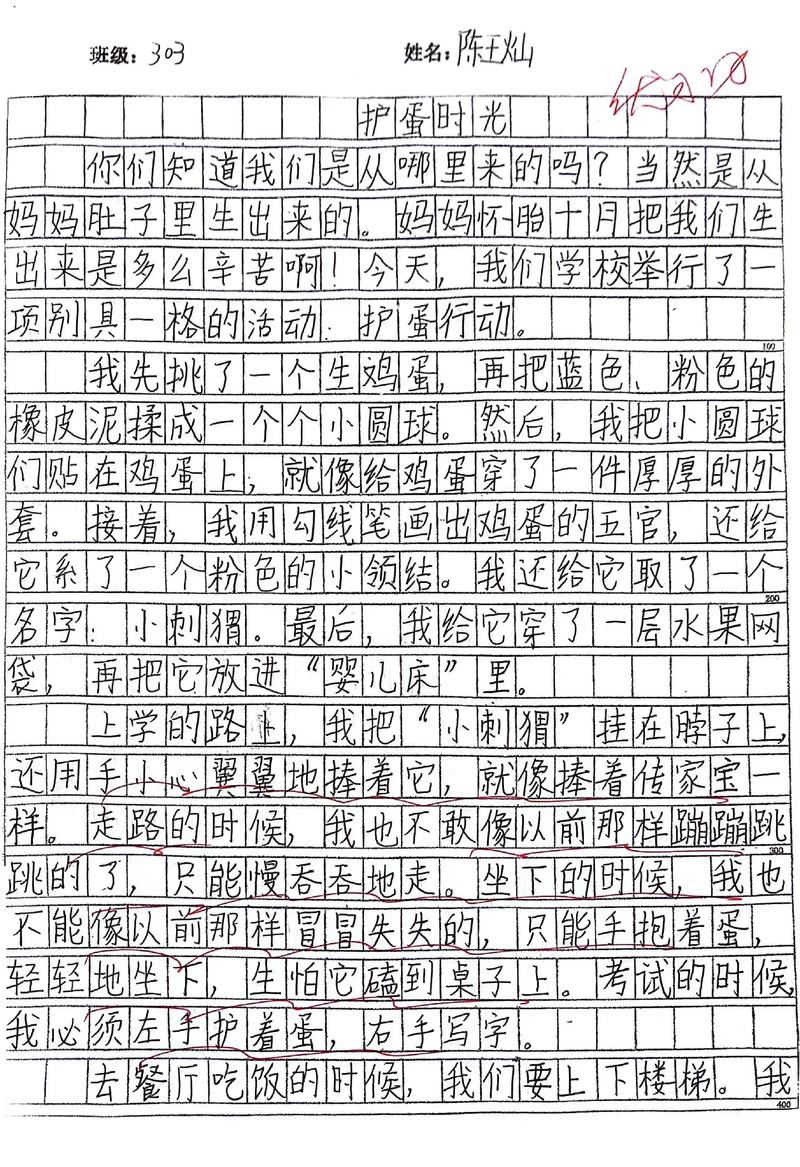 班级：303 姓名：陈王灿
护蛋时光
你们知道我们是从哪里来的吗？当然是从
妈妈肚子里生出来的。妈妈怀胎十月把我们生
出来是多么辛苦啊！今天，我们学校举行了一
项别具一格的活动：护蛋行动。
100
我先挑了一个生鸡蛋，再把蓝色、粉色的
橡皮泥揉成一个个小圆球。然后，我把小圆球
们贴在鸡蛋上，就像给鸡蛋穿了一件厚厚的外
套。接着，我用勾线笔画出鸡蛋的五官，还给
它系了一个粉色的小领结。我还给它取了一个
200
名字：小刺猬。最后，我给它穿了一层水果网
袋，再把它放进“婴儿床”里。
上学的路上，我把“小刺猬”挂在脖子上，
还用手小心翼翼地捧着它，就像捧着传家宝一
样。走路的时候，我也不敢像以前那样蹦蹦跳
300
跳的了，只能慢吞吞地走。坐下的时候，我也
不能像以前那样冒冒失失的，只能手抱着蛋，
轻轻地坐下，生怕它磕到桌子上。考试的时候，
我必须左手护着蛋，右手写字。
去餐厅吃饭的时候，我们要上下楼梯。我
400